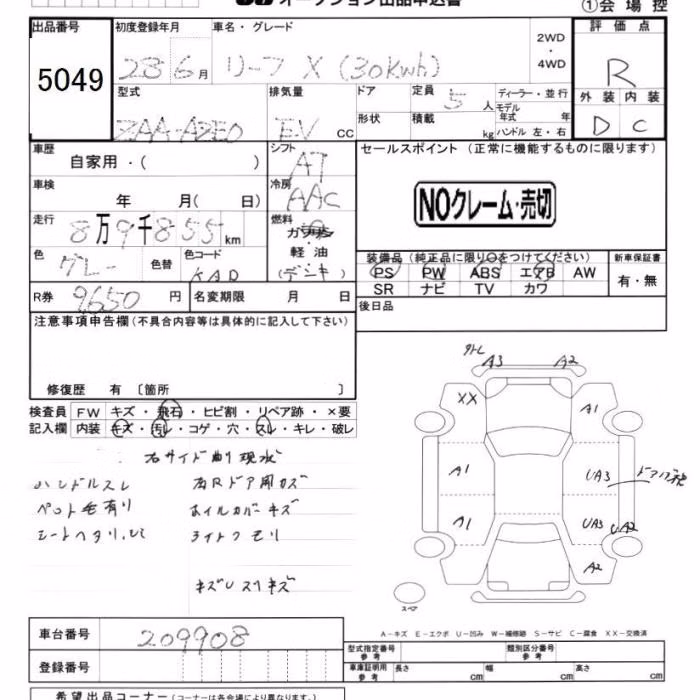 オークション出品申込書
①会場控
出品番号 初度登録年月 車名・グレード 評価点
5049 28 6月 リーフ X (30kwh) 2WD・4WD R
型式 排気量 ドア 定員 5人 ディーラー・並行 外装 内装
ZAA-AZE0 EV CC 形状 積載 kg モデル年式 年 ハンドル 左・右 D C
車歴 シフト セールスポイント (正常に機能するものに限ります)
自家用・( ) AT
車検 冷房 NOクレーム・売切
年 月( 日) AAC
走行 燃料
8万9千855km ガソリン
軽油
色 色替 色コード (デンキ) 装備品 (純正品に限り○をつけてください) 新車保証書
グレー KAD PS PW ABS エアB AW 有・無
SR ナビ TV カワ
R券 9650円 名変期限 月 日 後日品
注意事項申告欄 (不具合内容等は具体的に記入して下さい)
修復歴 有 〔箇所 〕
検査員 FW キズ・飛石・ヒビ割・リペア跡・×要
記入欄 内装 キズ・汚レ・コゲ・穴・スレ・キレ・破レ
右サイド曲り現状
ハンドルスレ
ペット毛有り
シートヘタリ
右Rドア開カズ
ホイルカバーキズ
ライトクモリ
A3 A2
XX A1
A1 UA3
A1 UA3 UA2
A2
スペア
A-キズ E-エクボ U-凹み W-補修跡 S-サビ C-腐食 XX-交換済
車台番号 209908
登録番号
型式指定番号 参考 類別区分番号 参考
車庫証明用 参考 長さ cm 幅 cm 高さ cm
希望出品コーナー (コーナーは各会場により異なります)